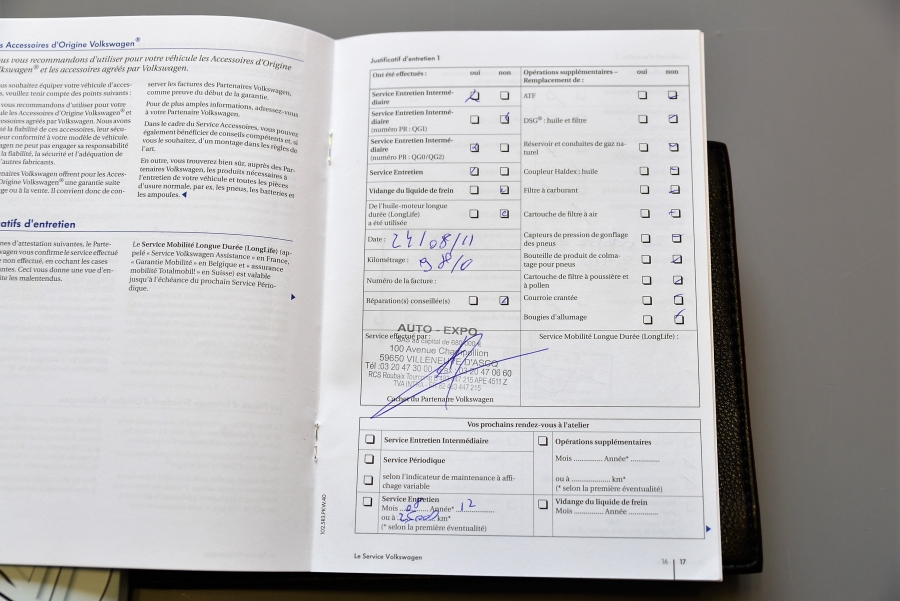 s Accessoires d'Origine Volkswagen®
us vous recommandons d'utiliser pour votre véhicule les Accessoires d'Origine
lkswagen® et les accessoires agréés par Volkswagen.
ouhaitez équiper votre véhicule d'acces-
, veuillez tenir compte des points suivants :
vous recommandons d'utiliser pour votre
ule les Accessoires d'Origine Volkswagen® et
essoires agréés par Volkswagen. Nous avons
é la fiabilité de ces accessoires, leur sécu-
eur conformité à votre modèle de véhicule.
agen ne peut pas engager sa responsabilité
la fiabilité, la sécurité et l'adéquation de
'autres fabricants.
enaires Volkswagen offrent pour les Acces-
Origine Volkswagen® une garantie suite
ge ou à la vente. Il convient donc de con-
server les factures des Partenaires Volkswagen,
comme preuve du début de la garantie.
Pour de plus amples informations, adressez-vous
à votre Partenaire Volkswagen.
Dans le cadre du Service Accessoires, vous pouvez
également bénéficier de conseils compétents et, si
vous le souhaitez, d'un montage dans les règles de
l'art.
En outre, vous trouverez bien sûr, auprès des Par-
tenaires Volkswagen, les produits nécessaires à
l'entretien de votre véhicule et toutes les pièces
d'usure normale, par ex, les pneus, les batteries et
les ampoules.
atifs d'entretien
nes d'attestation suivantes, le Parte-
wagen vous confirme le service effectué
e non effectué, en cochant les cases
antes. Ceci vous donne une vue d'en-
ite les malentendus.
Le Service Mobilité Longue Durée (LongLife) (ap-
pelé « Service Volkswagen Assistance » en France,
« Garantie Mobilité » en Belgique et « assurance
mobilité Totalmobil! » en Suisse) est valable
jusqu'à l'échéance du prochain Service Pério-
dique.
Justificatif d'entretien 1
Ont été effectués : oui non
Service Entretien Intermé-
diaire
Service Entretien Intermé-
diaire
(numéro PR : QG1)
Service Entretien Intermé-
diaire
(numéro PR : QG0/QG2)
Service Entretien
Vidange du liquide de frein
De l'huile-moteur longue
durée (LongLife)
a été utilisée
Date : 24/08/11
Kilométrage : 9810
Numéro de la facture :
Réparation(s) conseillée(s)
Opérations supplémentaires – oui non
Remplacement de :
ATF
DSG® : huile et filtre
Réservoir et conduites de gaz na-
turel
Coupleur Haldex : huile
Filtre à carburant
Cartouche de filtre à air
Capteurs de pression de gonflage
des pneus
Bouteille de produit de colma-
tage pour pneus
Cartouche de filtre à poussière et
à pollen
Courroie crantée
Bougies d'allumage
Service effectué par :
AUTO - EXPO
SAS au capital de 680 000 €
100 Avenue Champollion
59650 VILLENEUVE D'ASCQ
Tél :03 20 47 30 00 03 20 47 06 60
RCS Roubaix Tourcoing 447 215 APE 4511 Z
Cachet du Partenaire Volkswagen
Service Mobilité Longue Durée (LongLife) :
Vos prochains rendez-vous à l'atelier
Service Entretien Intermédiaire
Service Périodique
selon l'indicateur de maintenance à affi-
chage variable
Service Entretien
Mois 08 Année* 12
ou à 25000 km*
(* selon la première éventualité)
Opérations supplémentaires
Mois .............. Année* ..............
ou à .................... km*
(* selon la première éventualité)
Vidange du liquide de frein
Mois .............. Année ..............
102.5R3.PKW.40
Le Service Volkswagen
16 17